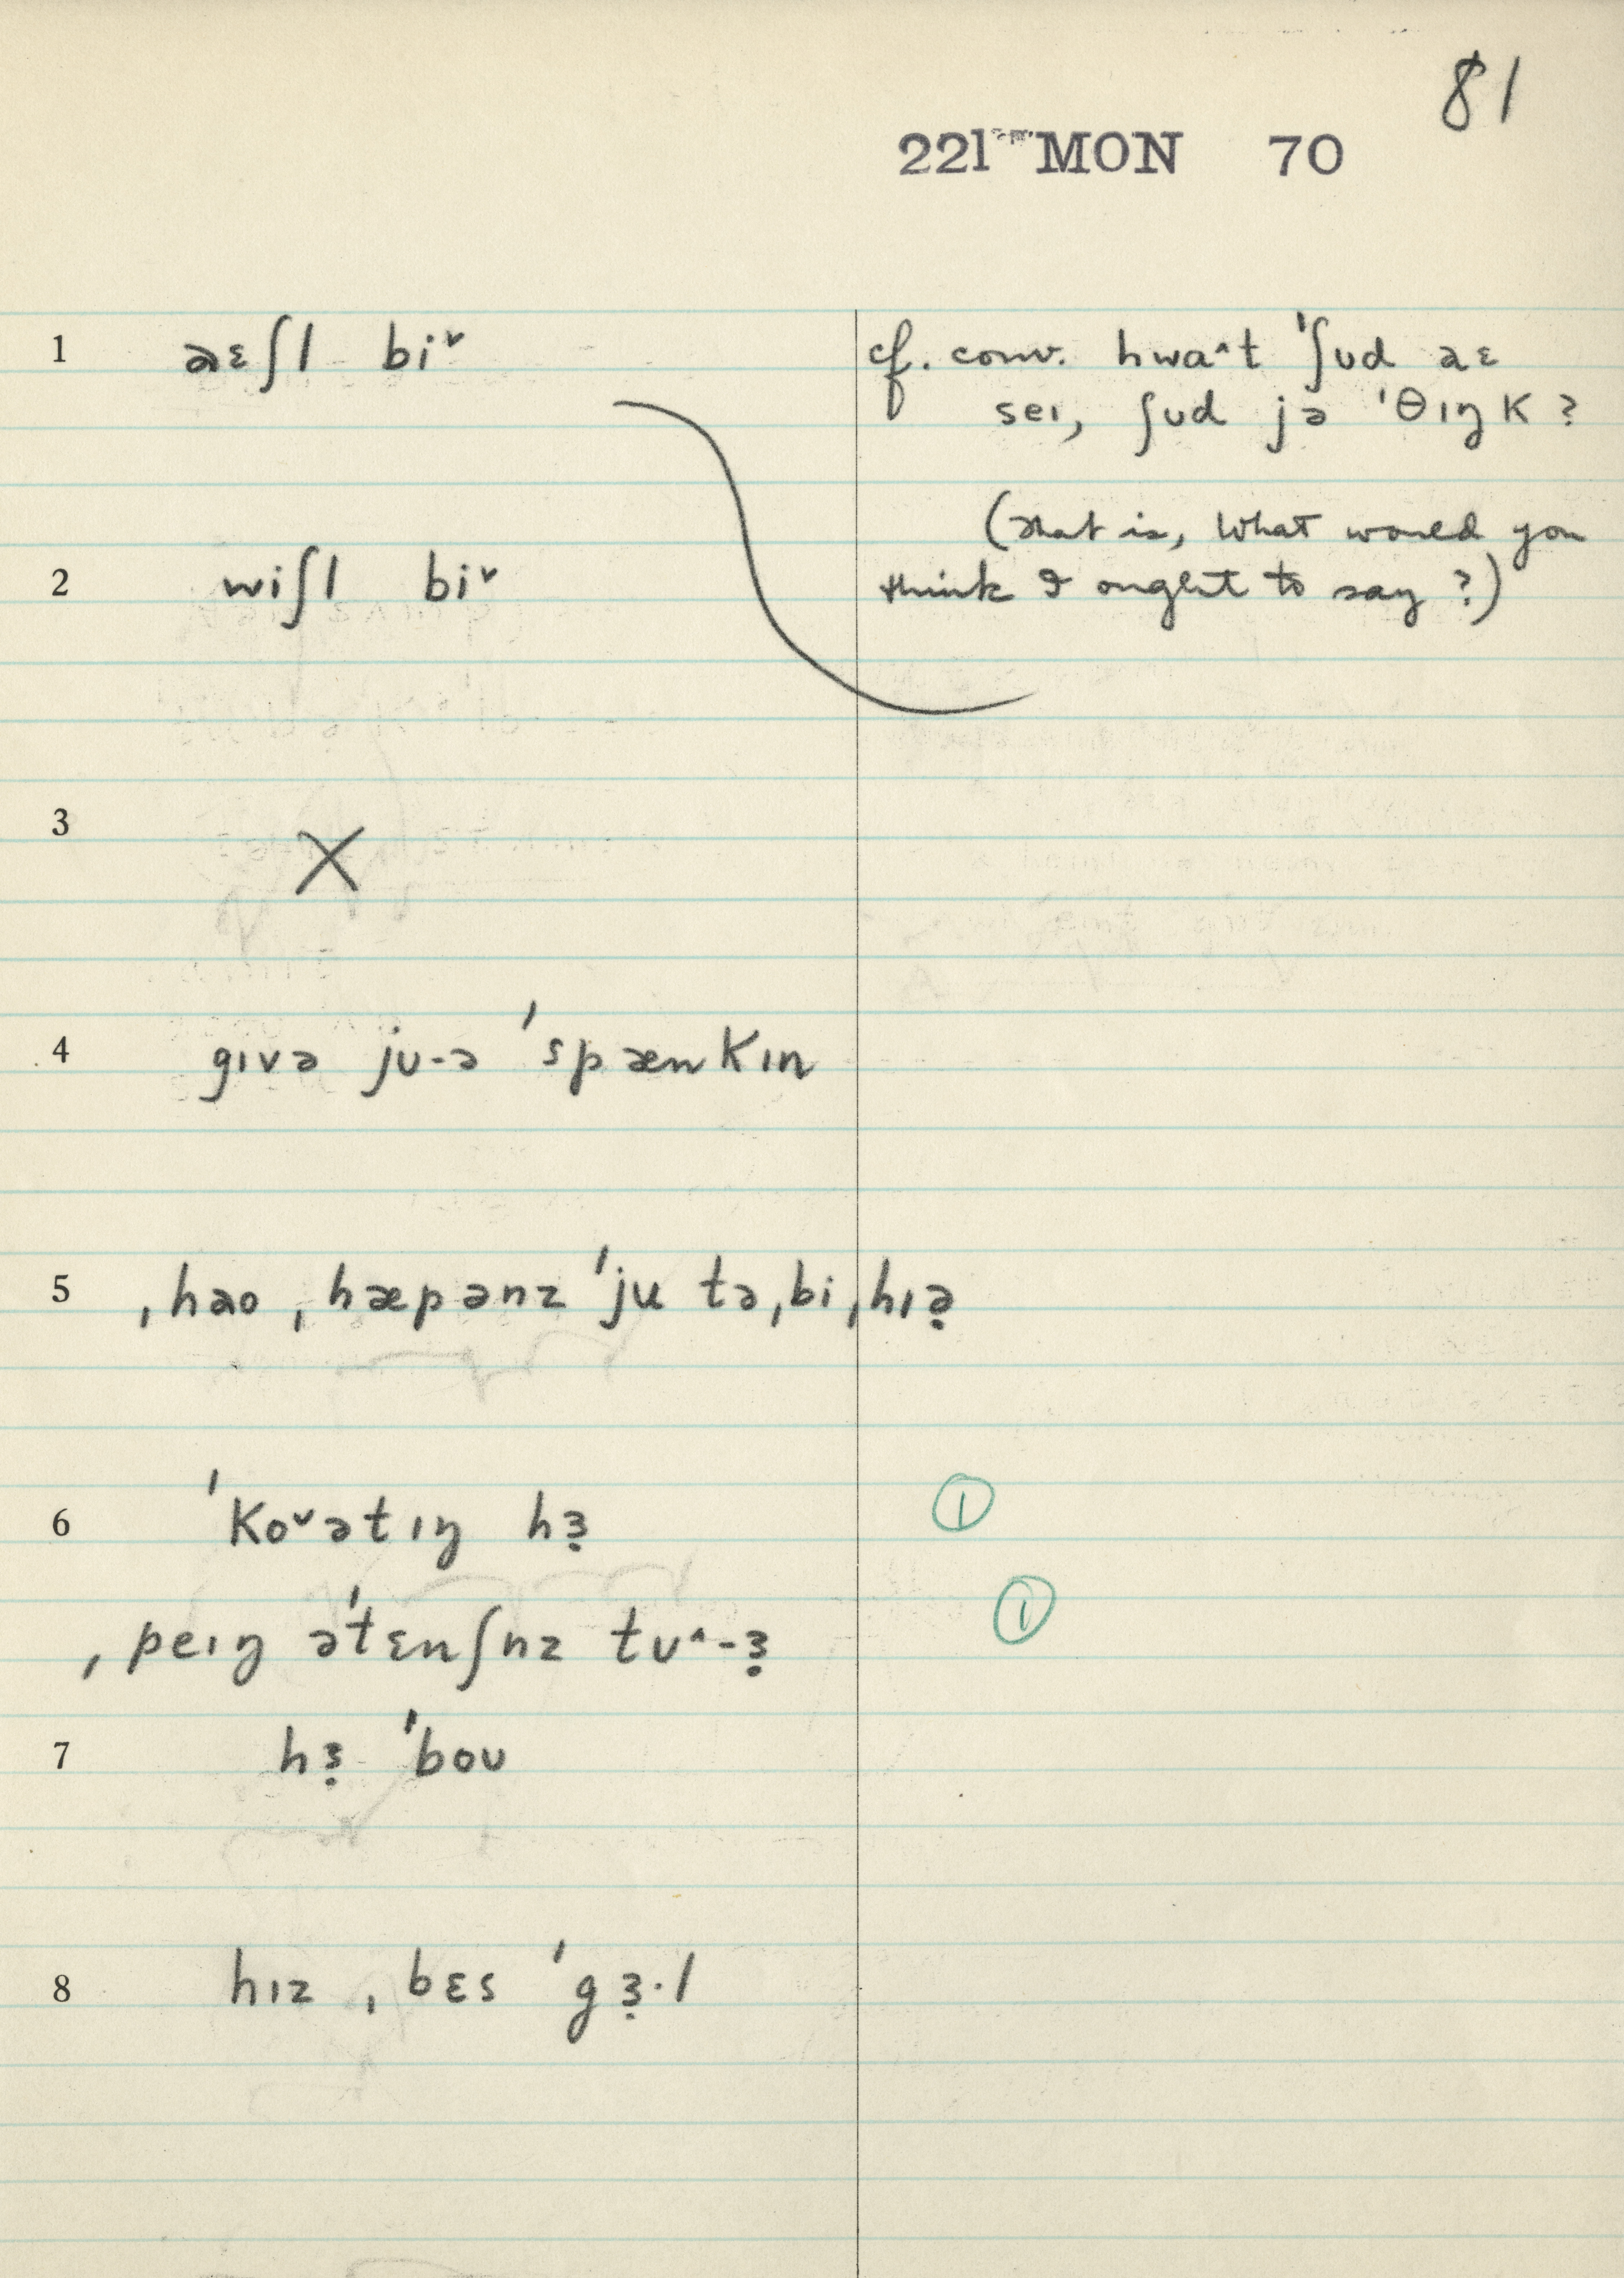 81
221 MON 70
1 aɛʃl biˇ
cf. conv. hwaˆt ˈʃʊd aɛ
seɪ, ʃʊd jə ˈθɪŋk ?
(that is, What would you
2 wiʃl biˇ
think I ought to say ?)
3 X
4 gɪvə jʊ-ə ˈspænkɪn
5 ˌhao ˌhæpənz ˈju təˌbiˌhɪə̣
6 ˈkoˇətɪŋ hɜ̣
①
ˌpeɪŋ əˈtɛnʃnz tʊˆ-ɜ̣
①
7 hɜ̣ ˈboʊ
8 hɪz ˌbɛs ˈgɜ̣·l